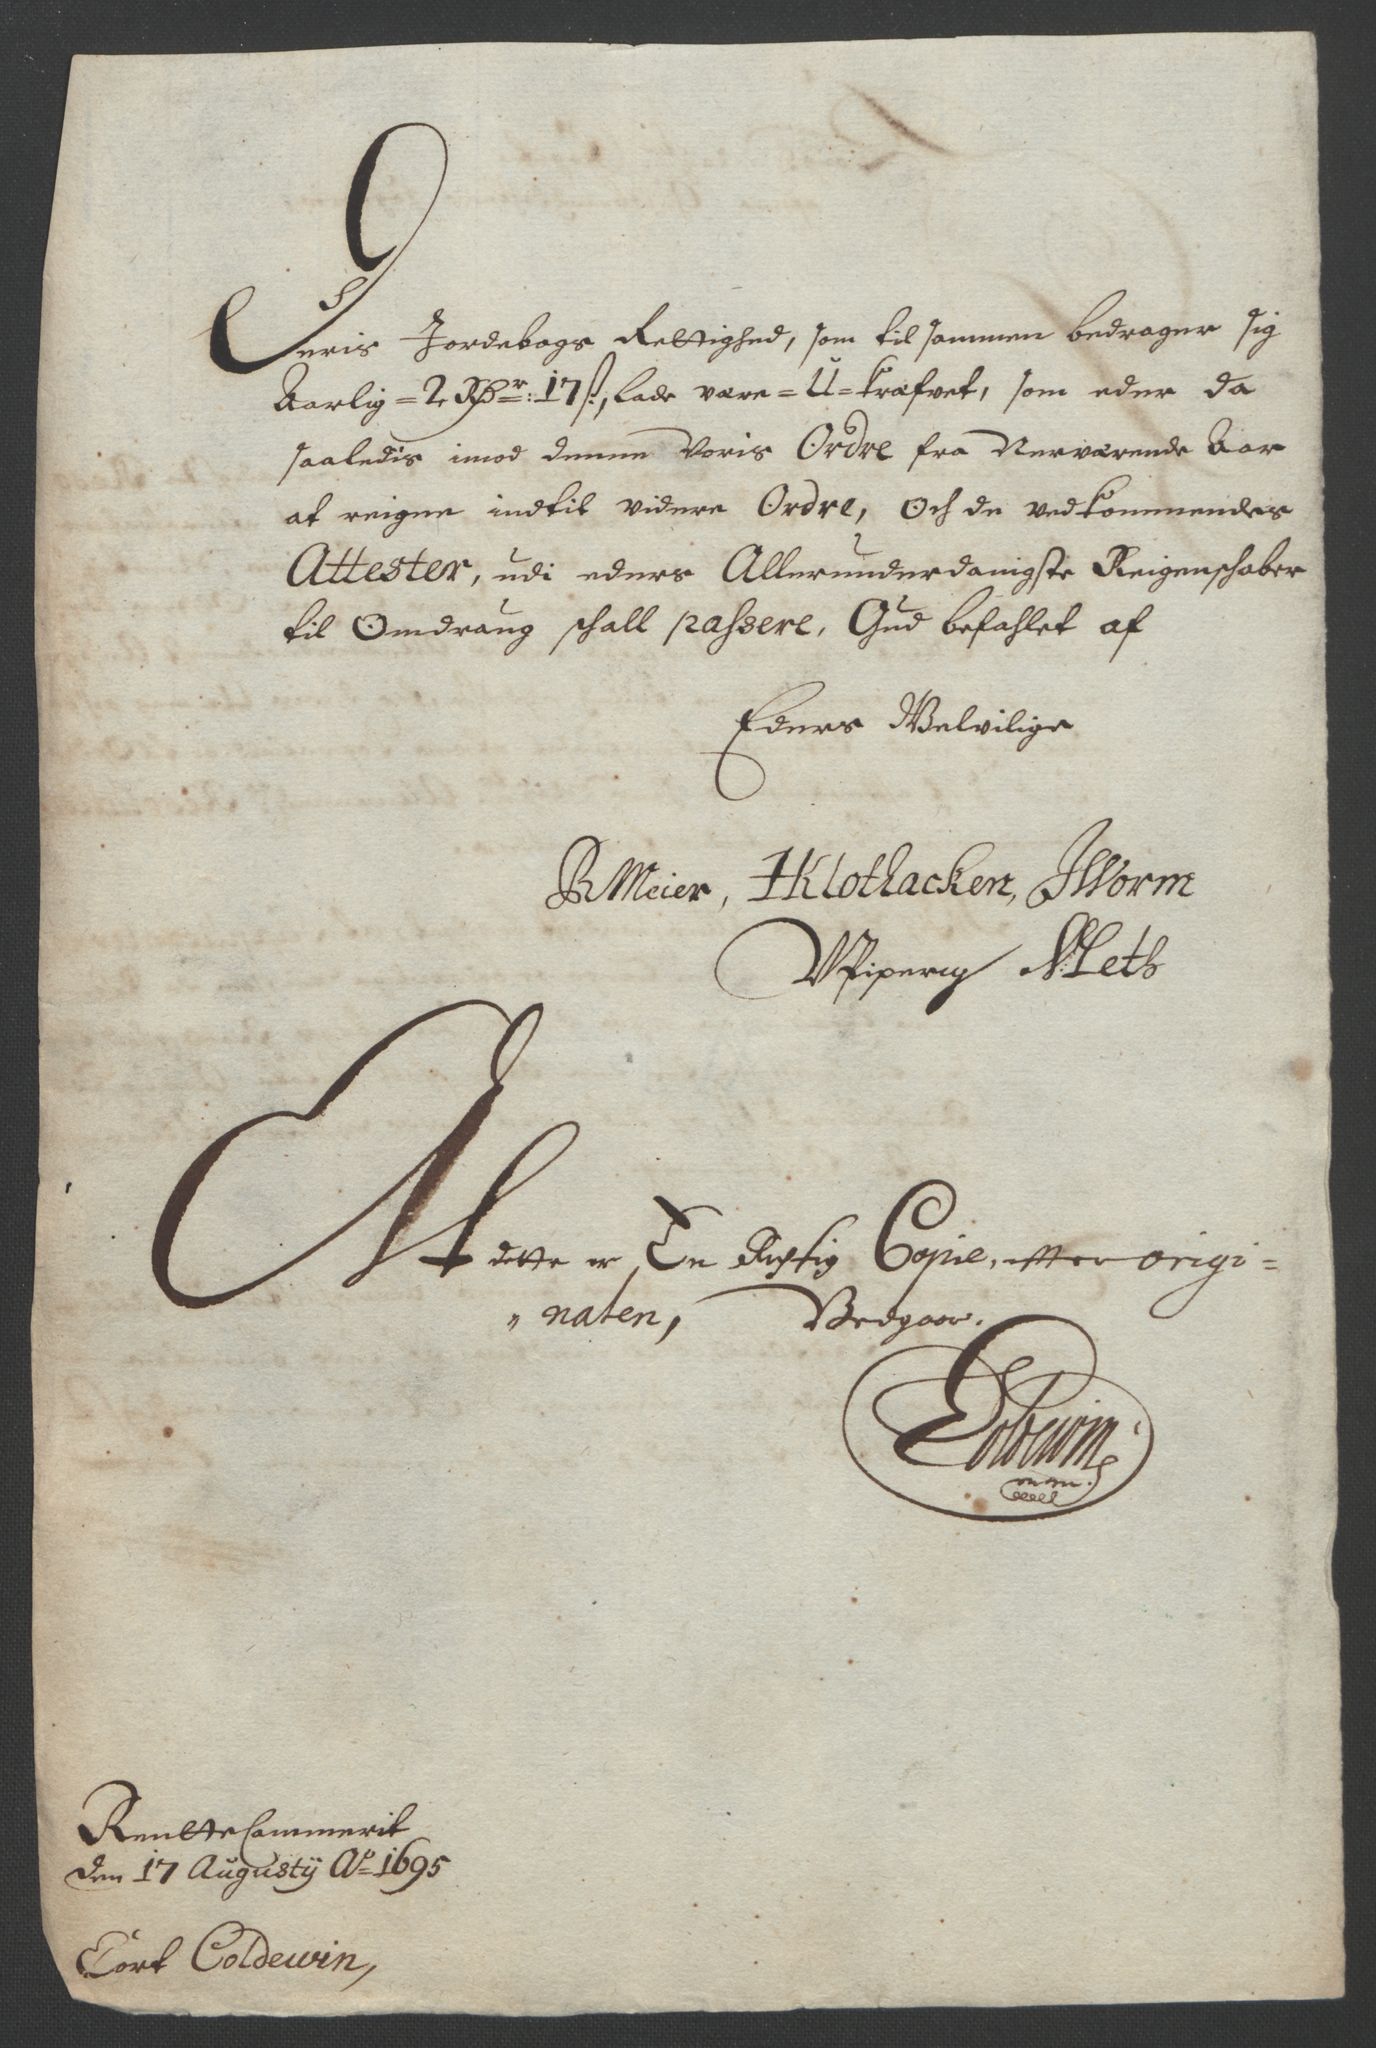 deris Jordebogs Rettighed, som til sammen bedrager sig
Aarlig = 2 Rdr: 17 ß:, lade være = U = Kræfvet, som eder da
saaledis imod denne Voris Ordre fra Nerværende Aar
at reigne indtil videre Ordre, Och de vedkommendes
Attester, udi eders Allerunderdanigste Reigenschaber
til Omdraug schall passere, Gud befahlet af
Eders Velvilige
R Meier, H Klothacken, J Worm
V Piperig N Leth
At dette er En Richtig Copie, etter origi=
" nalen, Vedgaar.
Coldewin
m m.
Renttecammerit
den 17 Augustij Ao 1695
Cort Coldewin,